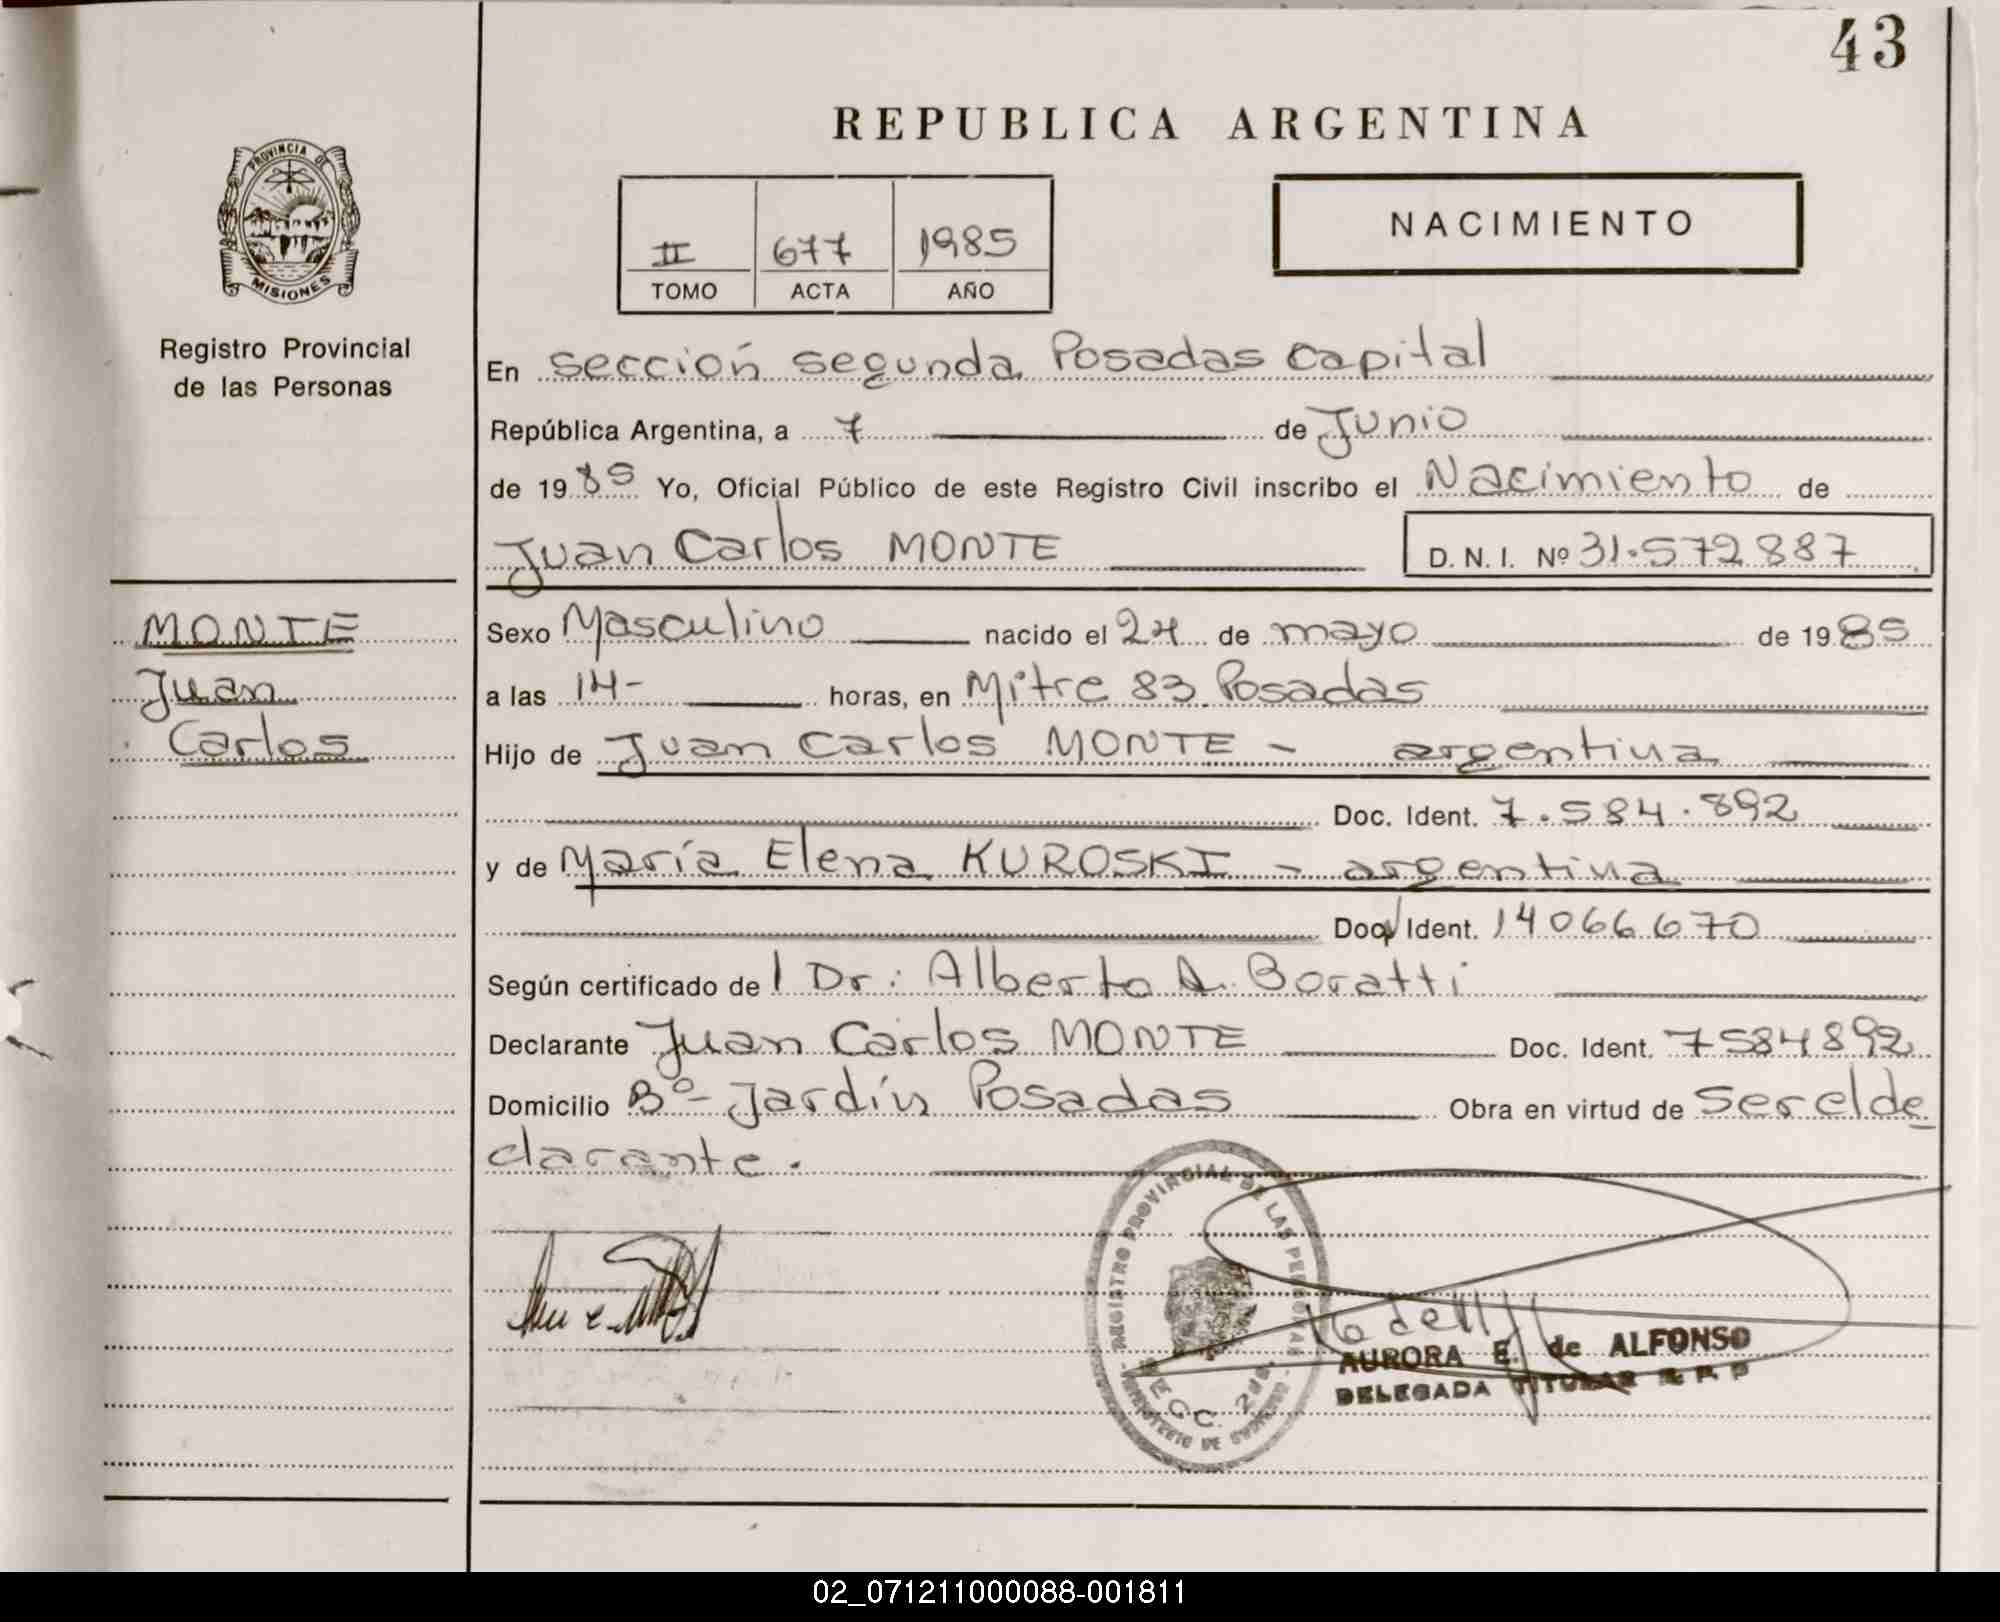 43
REPUBLICA ARGENTINA
PROVINCIA DE
MISIONES
Registro Provincial
de las Personas
NACIMIENTO
II 677 1985
TOMO ACTA AÑO
En sección segunda Posadas Capital
República Argentina, a 7 de Junio
de 1985 Yo, Oficial Público de este Registro Civil inscribo el Nacimiento de
Juan Carlos MONTE D.N.I. Nº 31.572887
MONTE
Juan
Carlos
Sexo Masculino nacido el 24 de mayo de 1985
a las 14- horas, en Mitre 83 Posadas
Hijo de Juan Carlos MONTE - argentina
Doc. Ident. 7.584.892
y de María Elena KUROSKI - argentina
Doc. Ident. 14066670
Según certificado de l Dr: Alberto A. Boratti
Declarante Juan Carlos MONTE Doc. Ident. 7584892
Domicilio Bº- Jardín Posadas Obra en virtud de ser el de
clarante.
REGISTRO PROVINCIAL DE LAS PERSONAS
AURORA E. de ALFONSO
DELEGADA TITULAR R.P.P
02_071211000088-001811